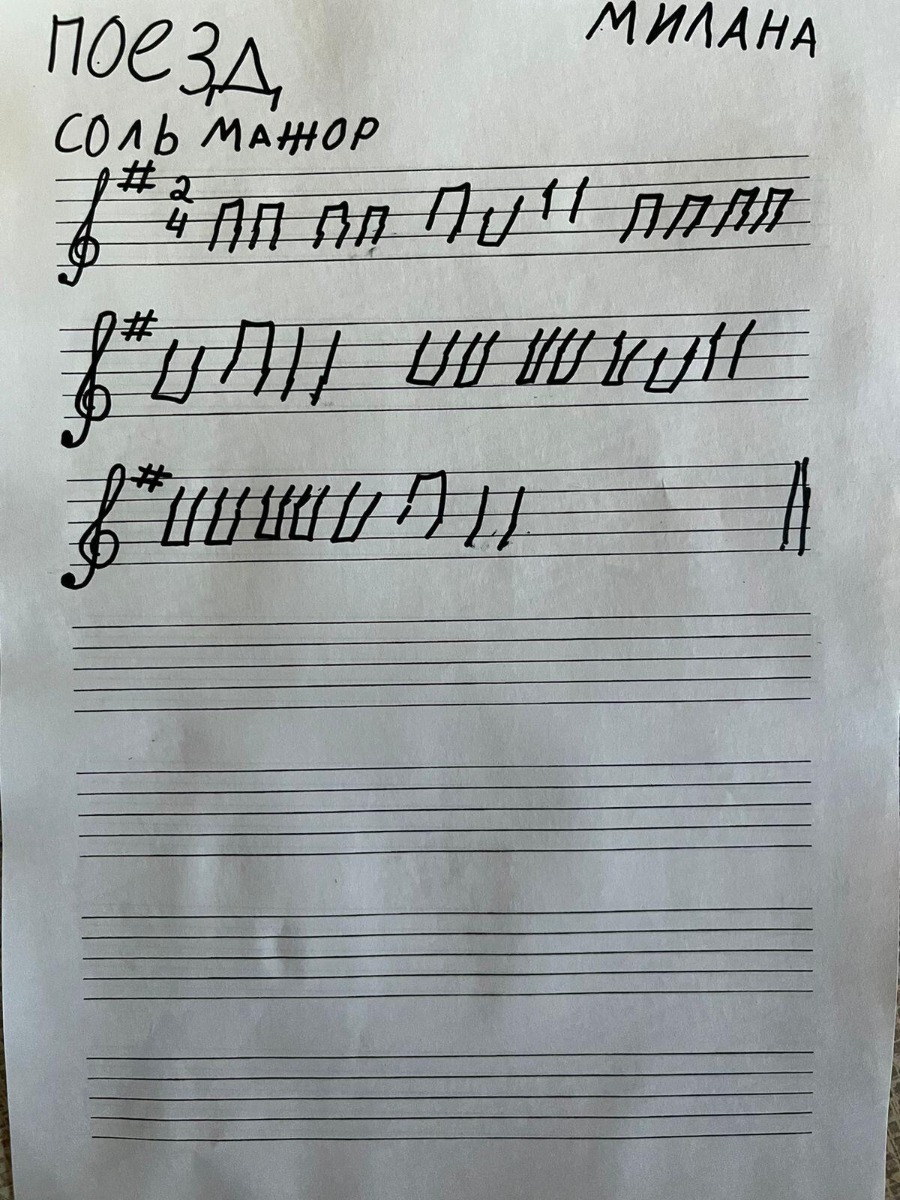 ПОЕЗД
МИЛАНА
СОЛЬ МАЖОР
2
4